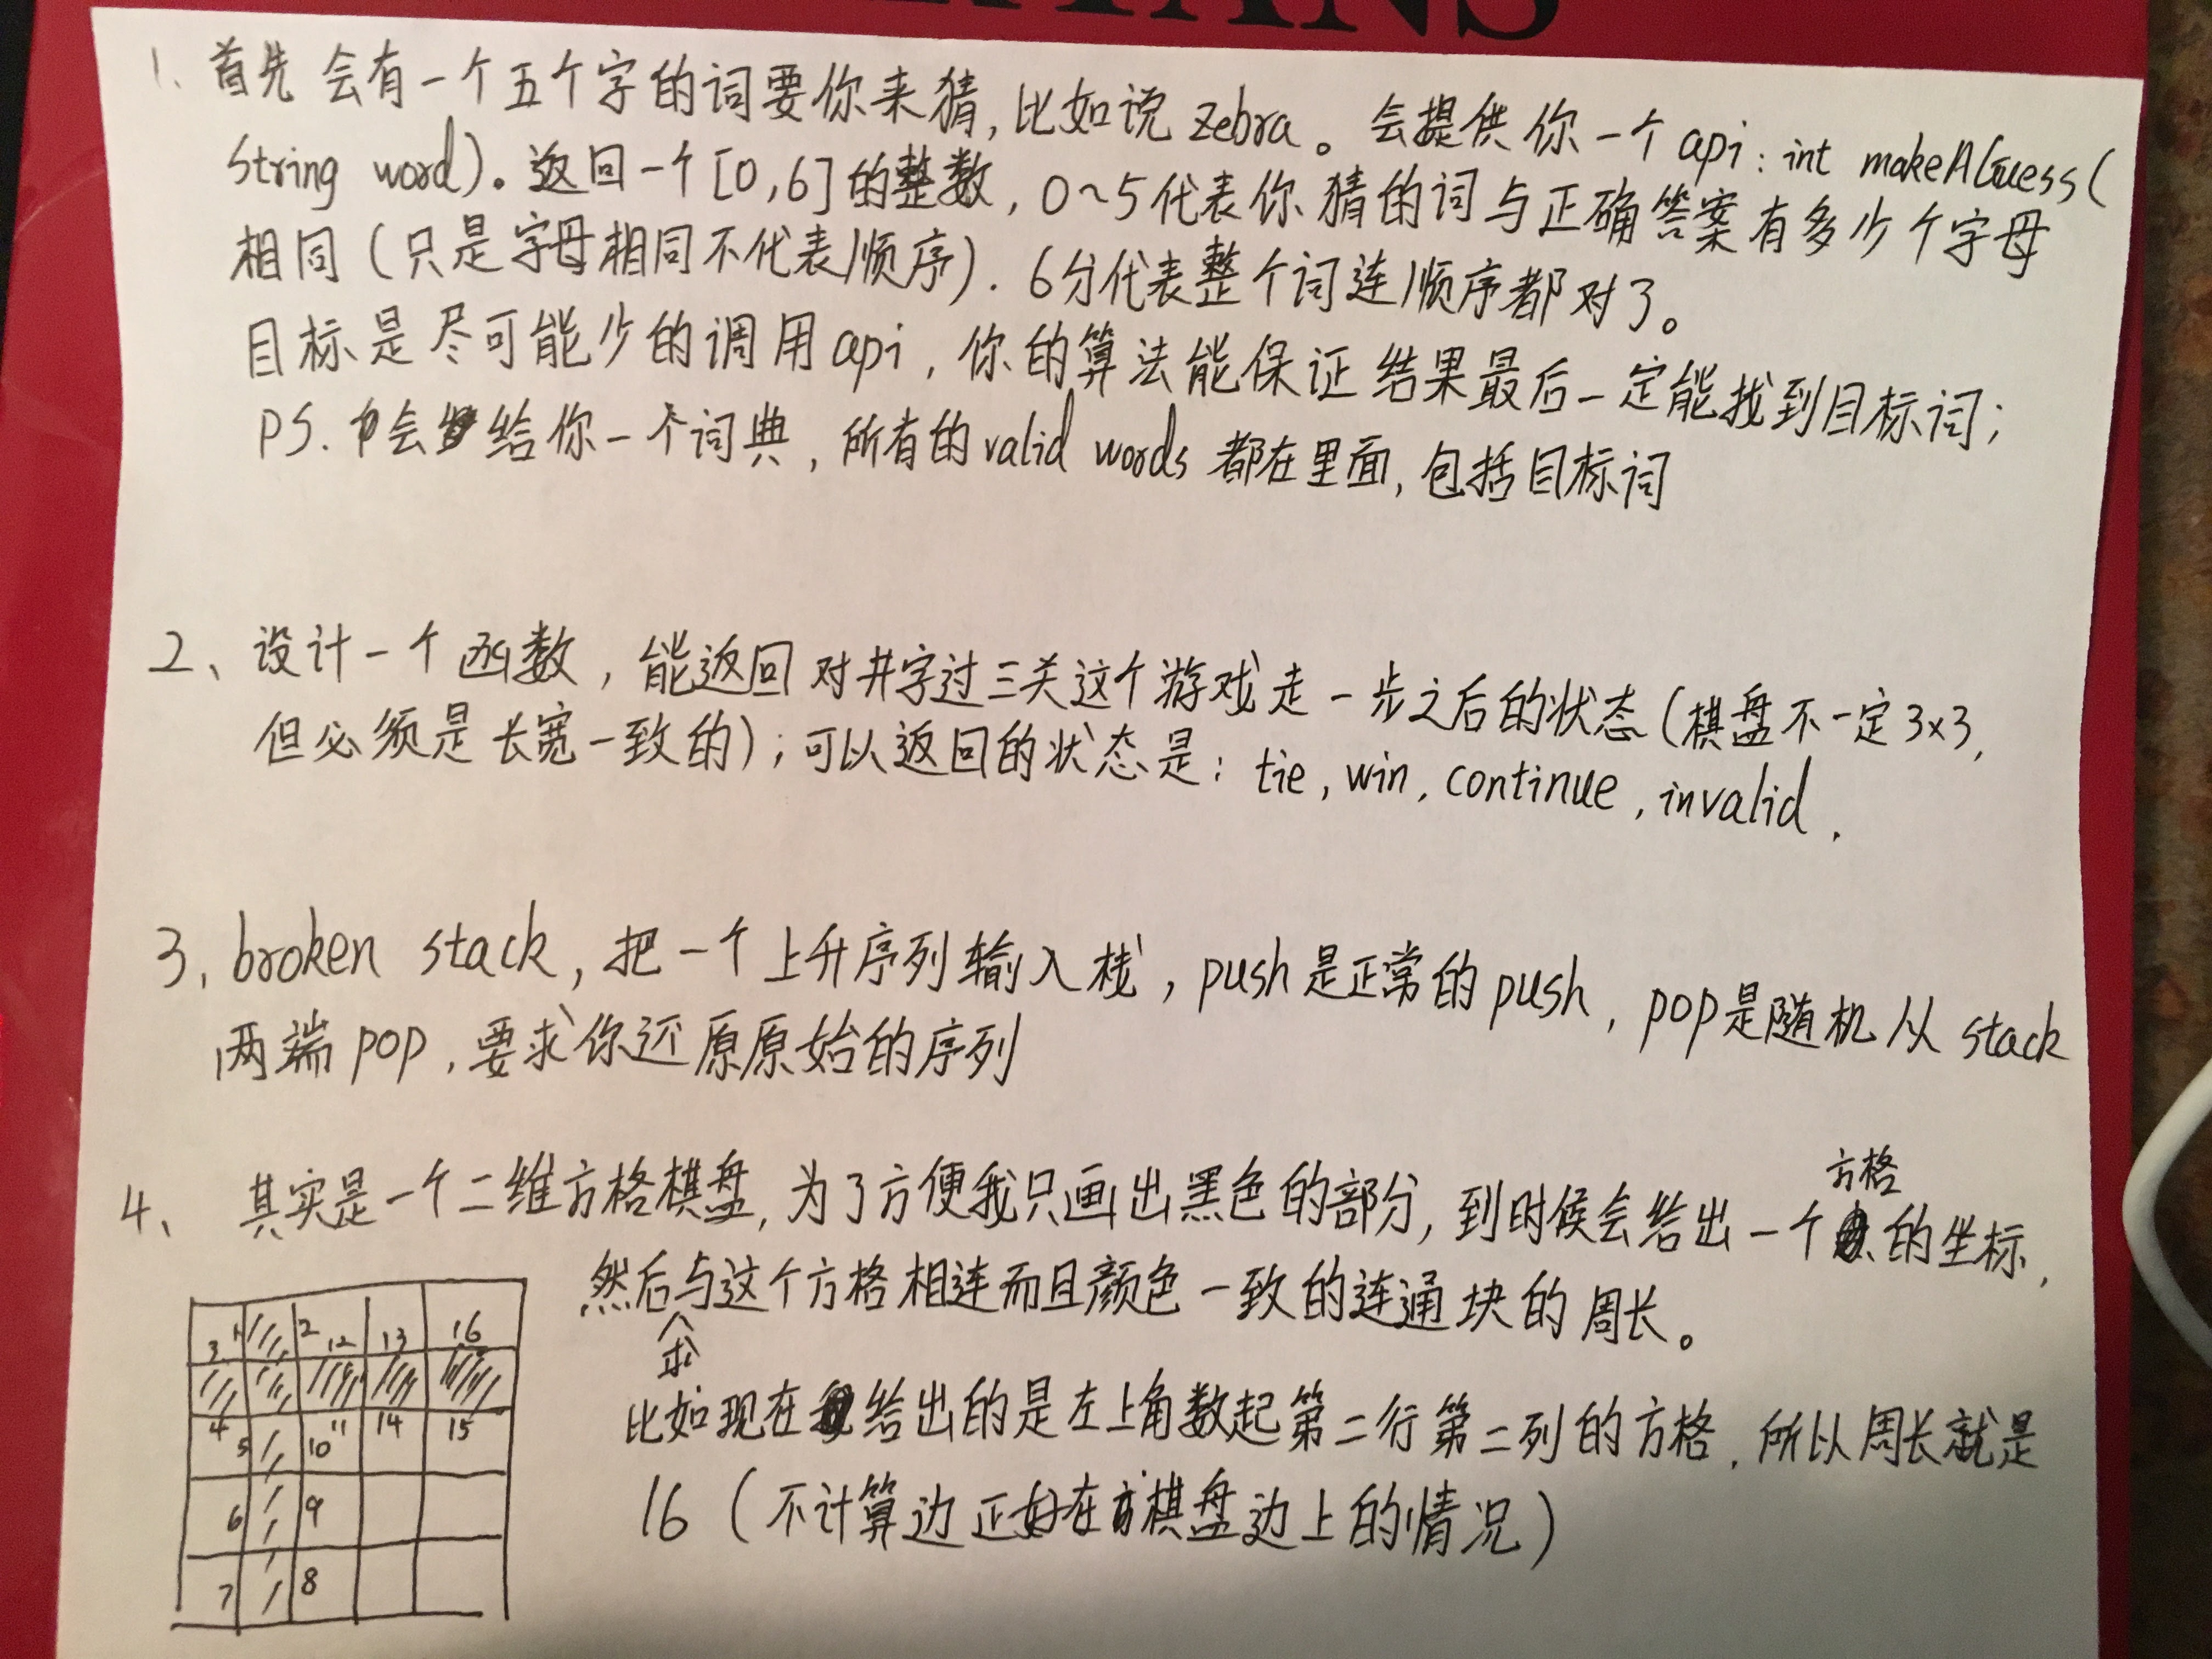 1. 首先 会有一个五个字的词要你来猜,比如说 zebra。会提供你一个 api: int makeAGuess(
String word)。返回一个[0,6]的整数,0~5代表你猜的词与正确答案有多少个字母
相同(只是字母相同不代表顺序).6分代表整个词连顺序都对了。
目标是尽可能少的调用api,你的算法能保证结果最后一定能找到目标词;
PS. 会给你一个词典,所有的valid words都在里面,包括目标词
2、设计一个函数,能返回对井字过三关这个游戏走一步之后的状态(棋盘不一定3×3,
但必须是长宽一致的);可以返回的状态是: tie, win, continue, invalid.
3, broken stack,把一个上升序列输入栈,push是正常的push,pop是随机从stack
两端pop,要求你还原原始的序列
4、其实是一个二维方格棋盘,为了方便我只画出黑色的部分,到时候会给出一个方格的坐标,
然后求与这个方格相连而且颜色一致的连通块的周长。
比如现在给出的是左上角数起第二行第二列的方格,所以周长就是
16(不计算边正好在棋盘边上的情况)
3 1 2 12 13 16
4 5 10 11 14 15
6 9
7 8